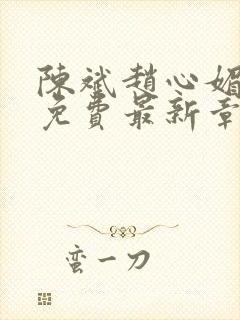 陳斌趙心媚
免費最新章
蛮一刀